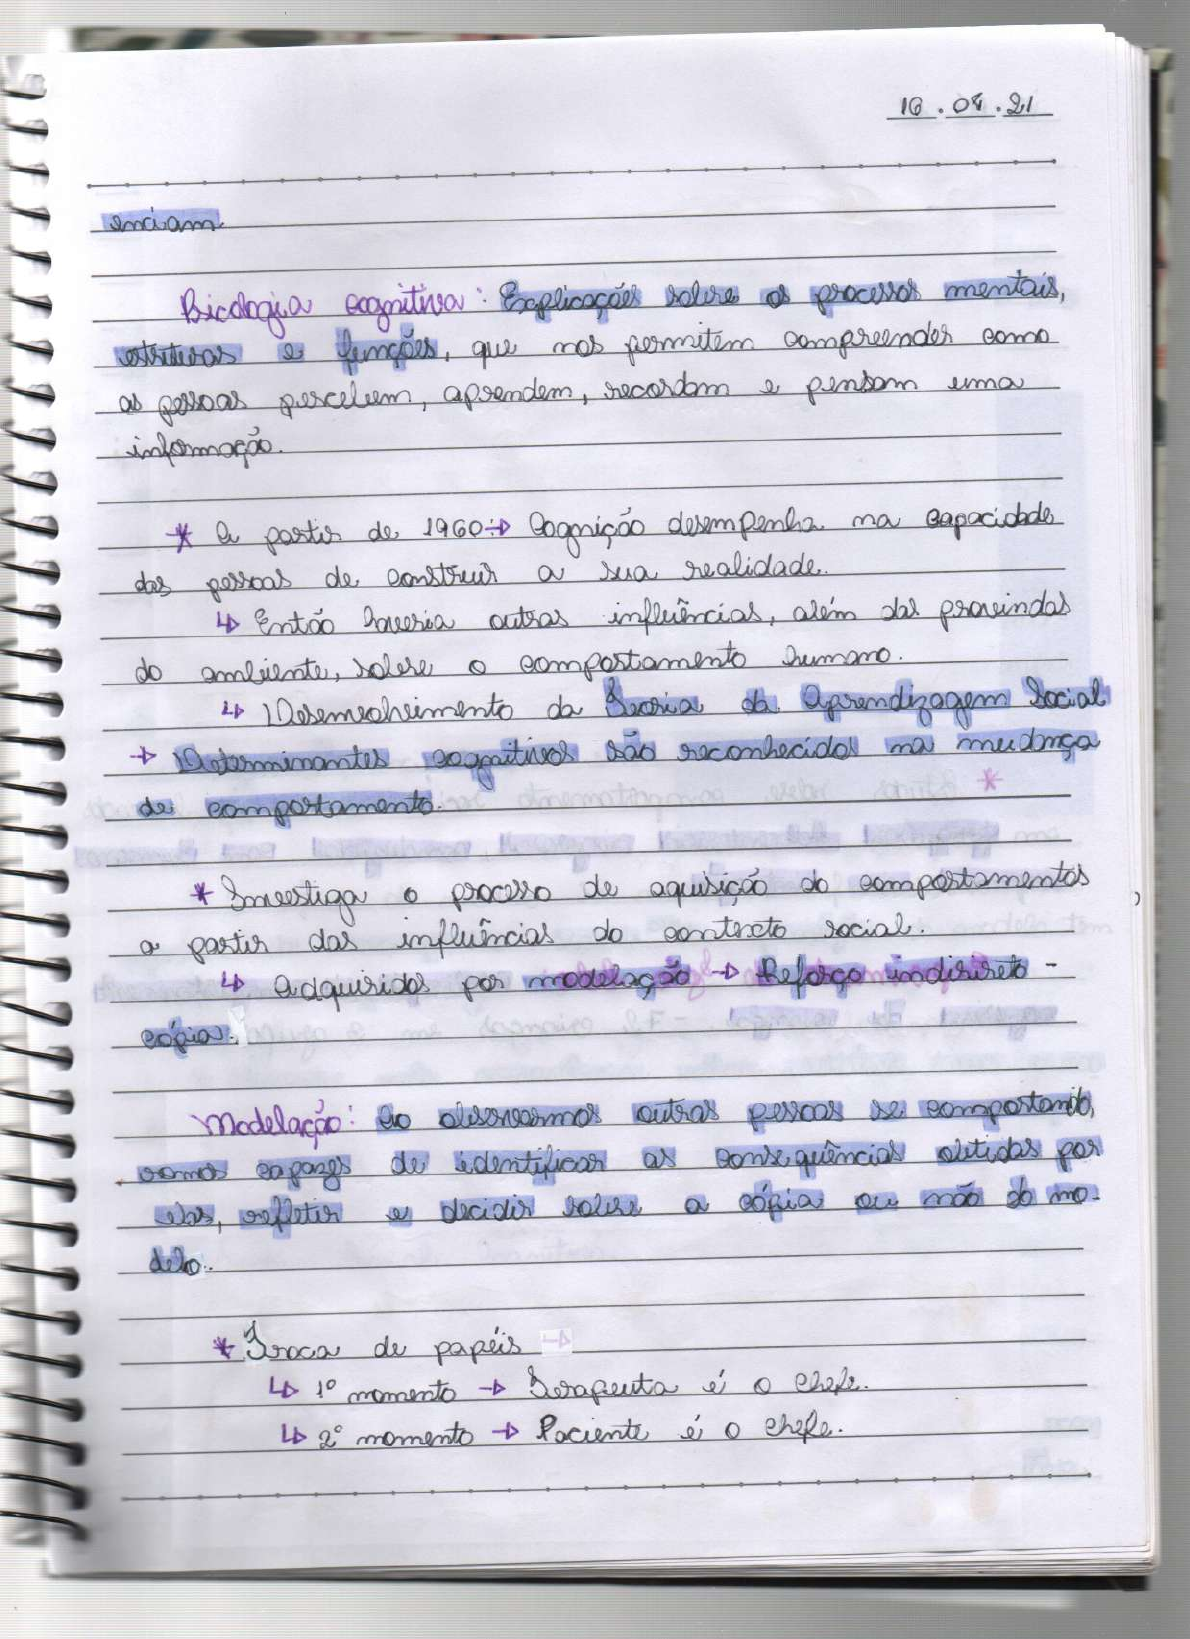 16.04.21
enciam.
Psicologia cognitiva: Explicações sobre os processos mentais,
estrituras e funções, que nos permitem compreender como
as pessoas percebem, aprendem, recordam e pensam uma
informação.
* A partir de 1960 → Cognição desempenha na capacidade
das pessoas de construir a sua realidade.
↳ Então haveria outras influências, além das provindas
do ambiente, sobre o comportamento humano.
↳ Desenvolvimento da Teoria da Aprendizagem Social
→ Determinantes cognitivos são reconhecidos na mudança
de comportamento.
* Investiga o processo de aquisição do comportamentos
a partir das influências do contexto social.
↳ Adquiridos por modelação → Reforço indireto -
cópia.
Modelação: Ao observarmos outras pessoas se comportando,
somos capazes de identificar as consequências obtidas por
elas, refletir e decidir sobre a cópia ou não do mo-
delo.
* Troca de papéis →
↳ 1º momento → Terapeuta é o chefe.
↳ 2º momento → Paciente é o chefe.